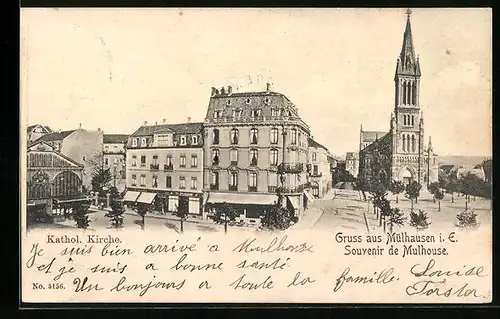 Kathol. Kirche.
Gruss aus Mülhausen i. E.
Souvenir de Mulhouse.
Je suis bien arrivé a Mulhouse.
et je suis a bonne santé
Un bonjours a toute la famille. Louise
No. 5156.